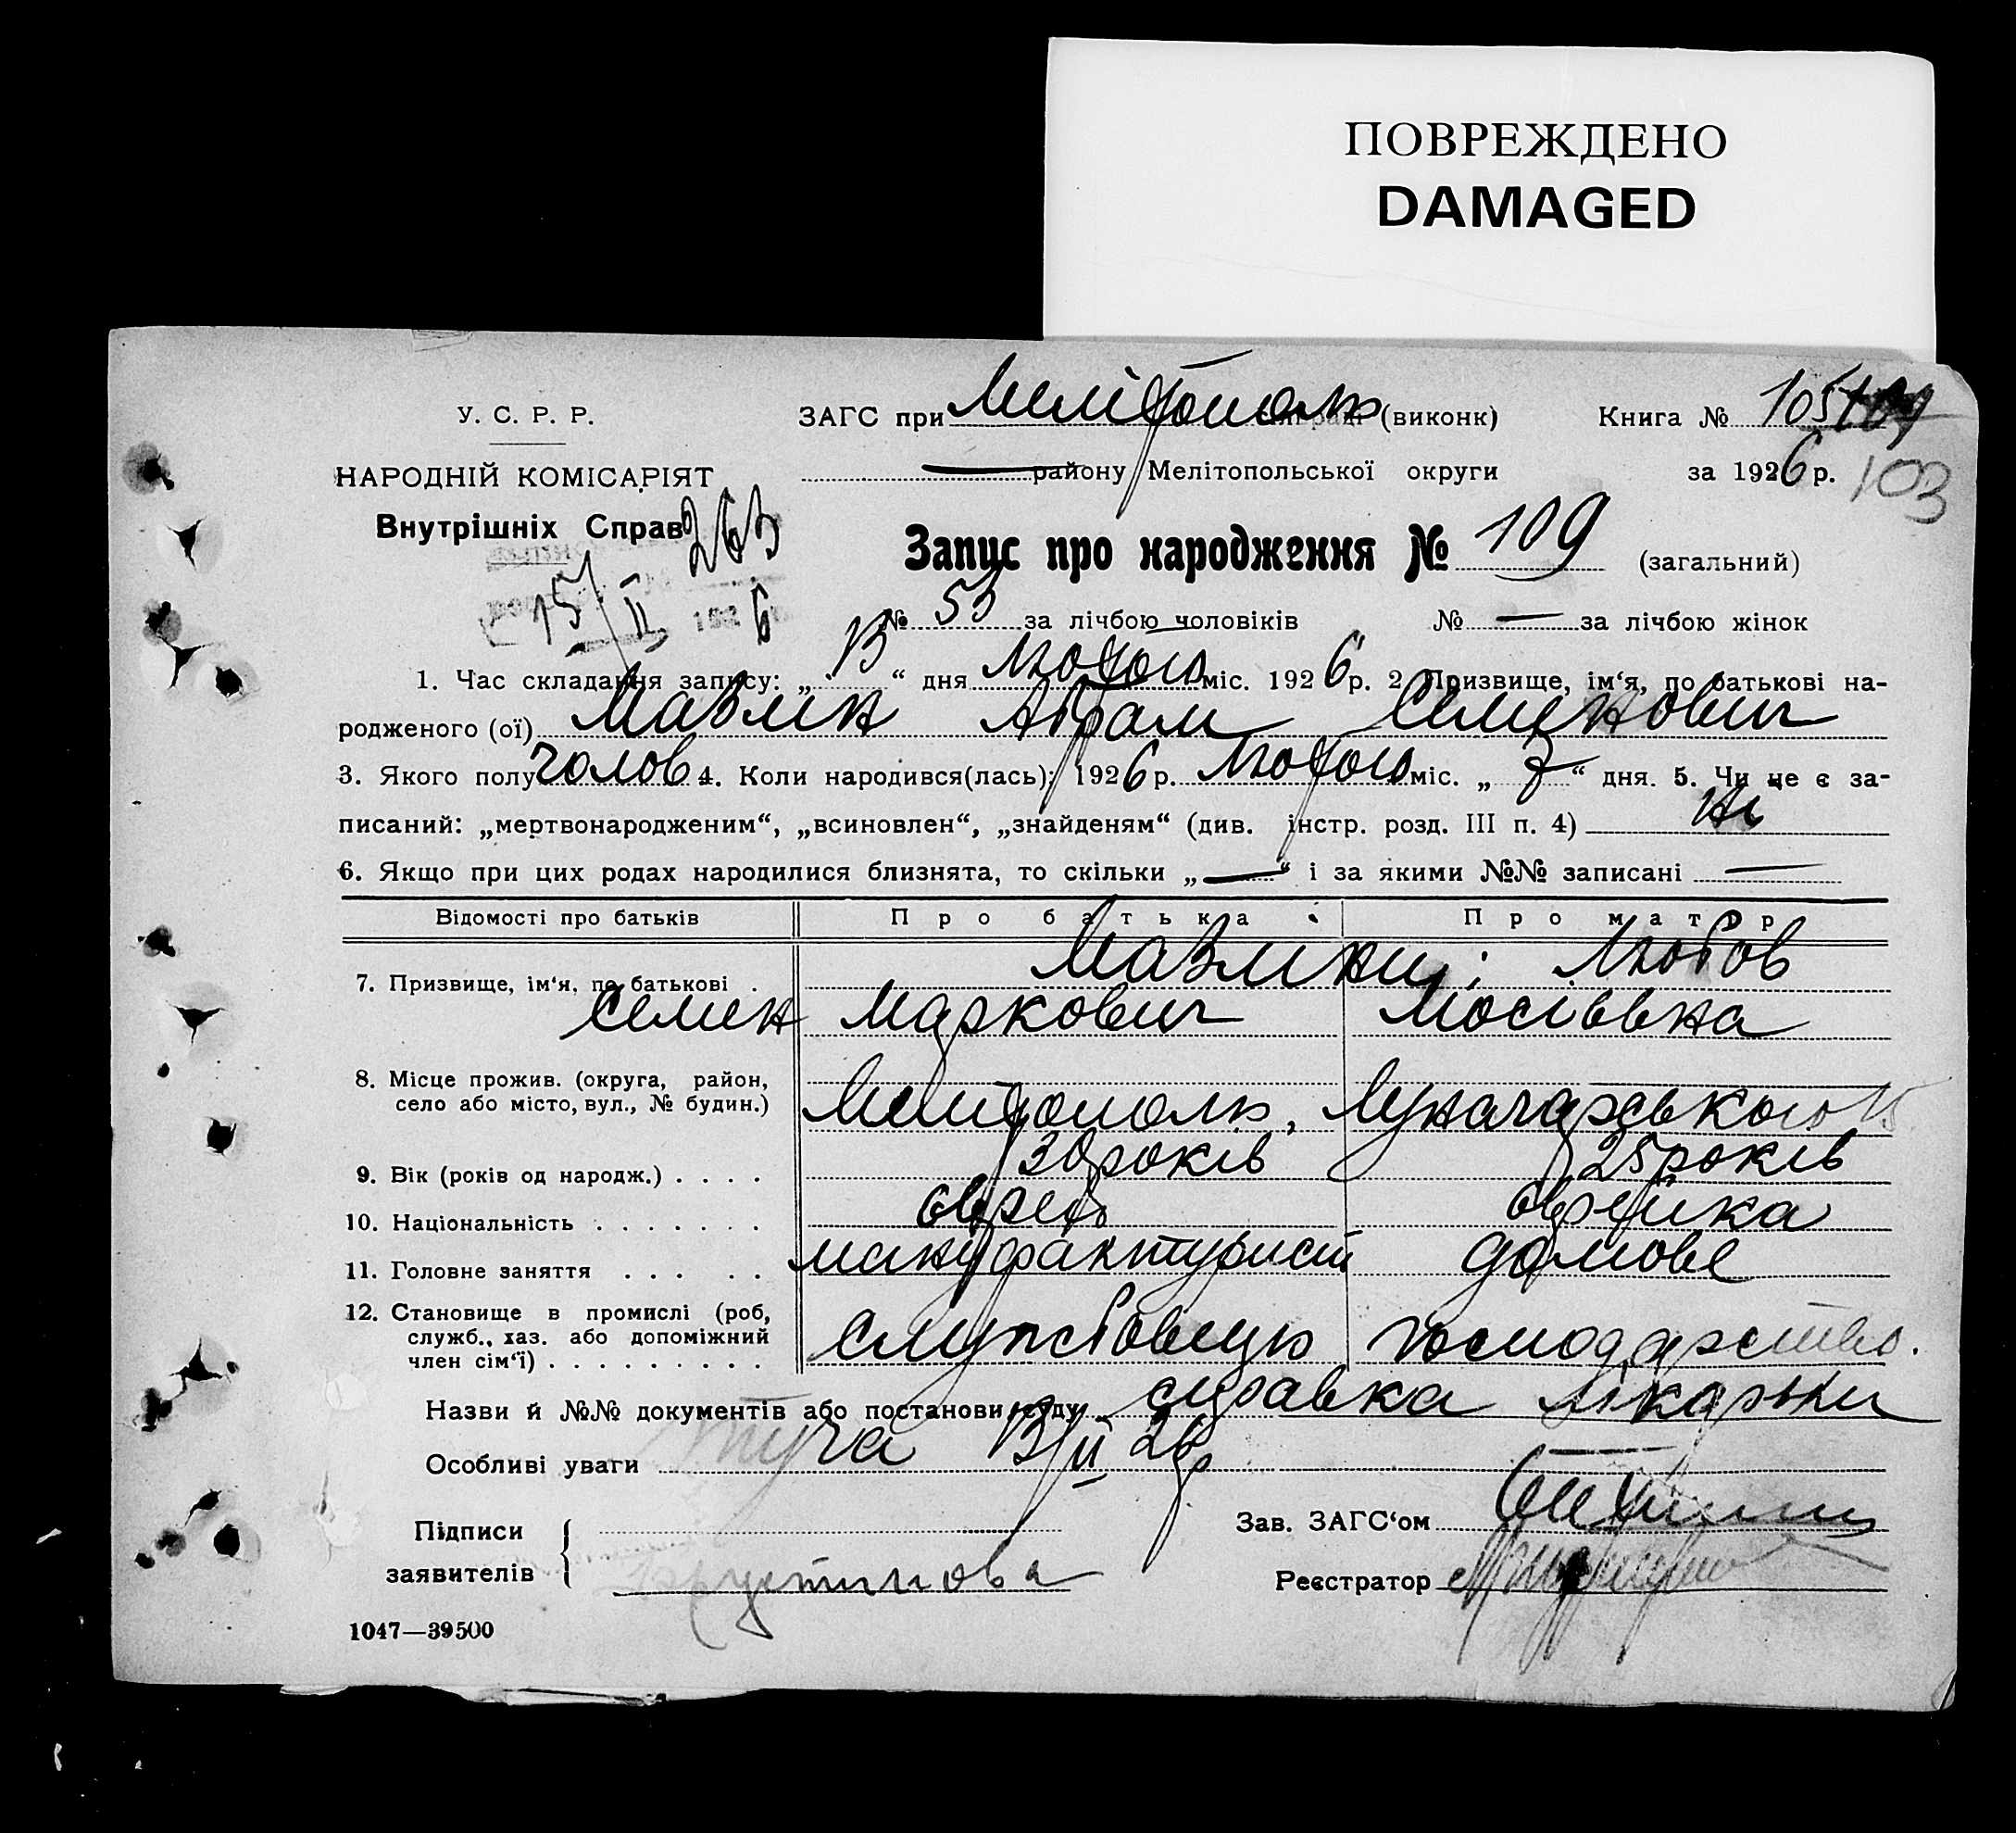 ПОВРЕЖДЕНО
DAMAGED
У. С. Р. Р.
ЗАГС при Мелітополь (виконк)
Книга № 105
НАРОДНІЙ КОМІСАРІЯТ
району Мелітопольської округи
за 1926 р. 103
Внутрішніх Справ 263
Запис про народження № 109 (загальний)
15/II 1926
№ 53 за лічбою чоловіків № — за лічбою жінок
1. Час складання запису: „13“ дня Лютого міс. 1926 р. 2 Призвище, ім‘я, по батькові на-
родженого (ої) Мазлин Абрам Семенович
3. Якого полу чолов 4. Коли народився(лась): 1926 р. Лютого міс. „7“ дня. 5. Чи не є за-
писаний: „мертвонародженим“, „всиновлен“, „знайденям“ (див. інстр. розд. III п. 4) ні
6. Якщо при цих родах народилися близнята, то скільки „—“ і за якими №№ записані —
Відомості про батьків Про батька Про матір
7. Призвище, ім‘я, по батькові . Мазлини: Любов
Семен Маркович Мосіївна
8. Місце прожив. (округа, район,
село або місто, вул., № будин.) Мелітополь, Луначарського 15
9. Вік (років од народж.) . . . . 30 років 25 років
10. Національність . . . . . . . єврей єврейка
11. Головне заняття . . . . . мануфактурист домове
12. Становище в промислі (роб,
служб., хаз. або допоміжний
член сім‘ї) . . . . . . . . . службовець господарство.
Назви й №№ документів або постанови суду справка лікарьки
13/II 26р
Особливі уваги
Підписи
заявителів
Зав. ЗАГС‘ом
Реєстратор
1047—39500